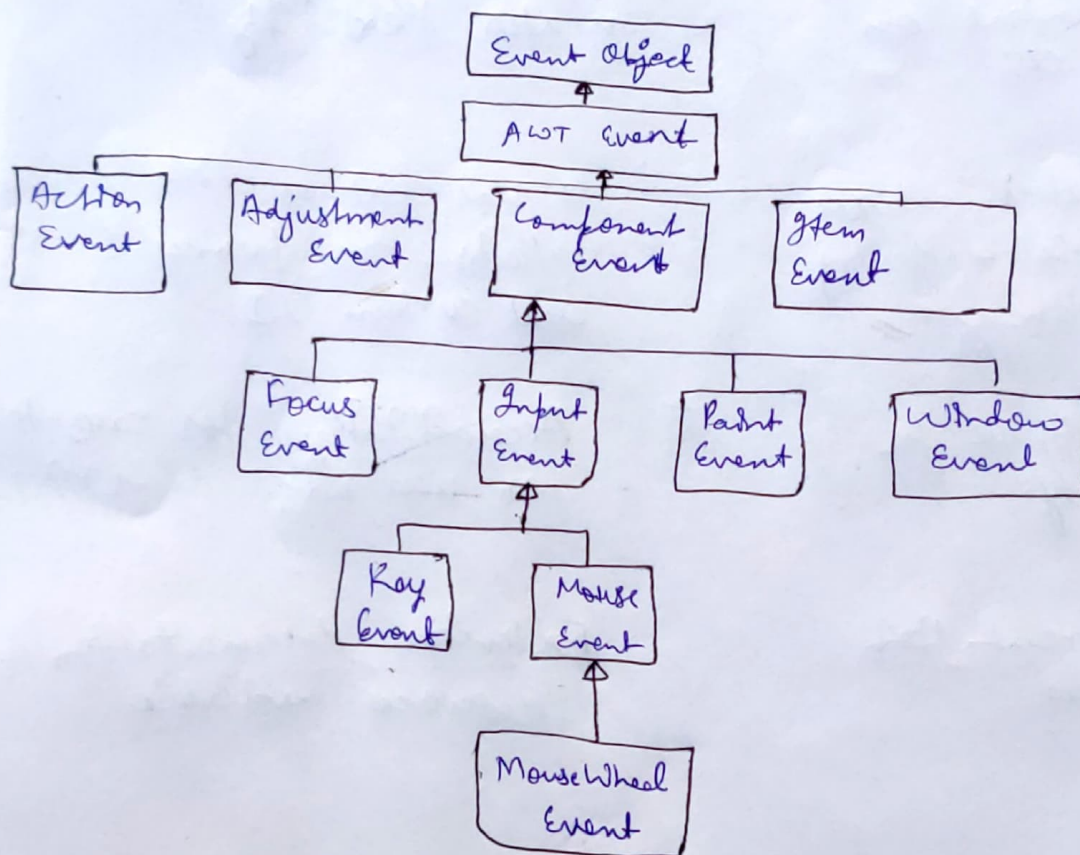 Event Object
AWT Event
Action
Event
Adjustment
Event
Component
Event
Item
Event
Focus
Event
Input
Event
Paint
Event
Window
Event
Key
Event
Mouse
Event
MouseWheel
Event